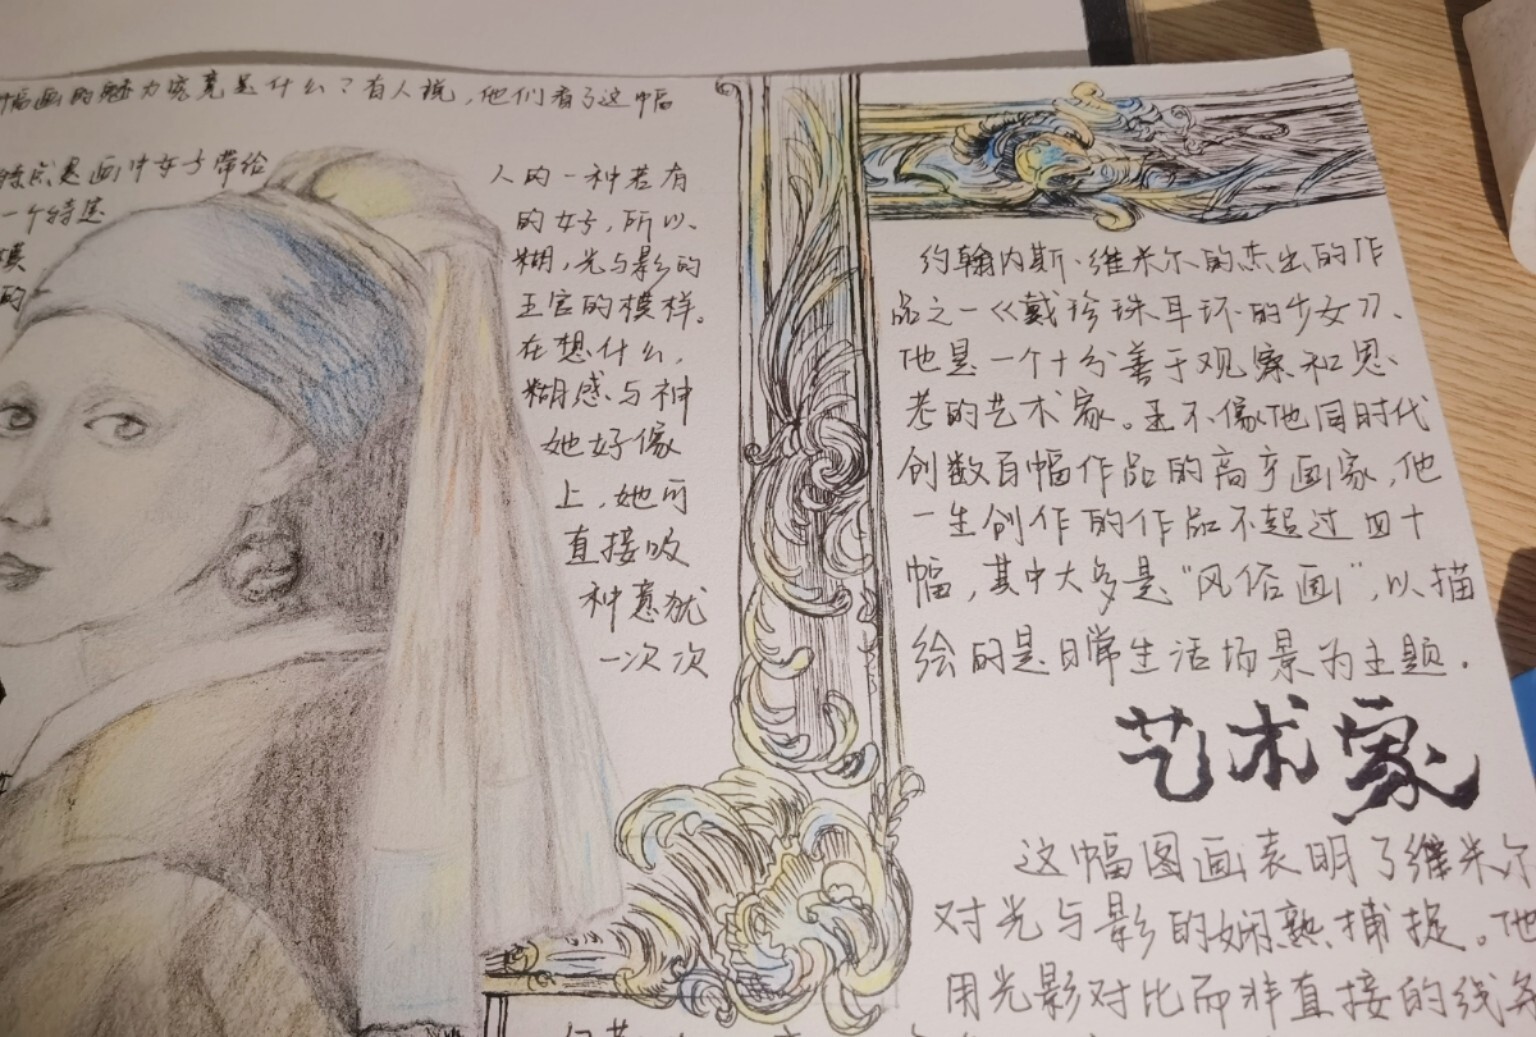 幅画的魅力究竟是什么？有人说，他们看了这幅
特点是画中女子带给
一个特违
模
的
人的一种若有
的好子，所以、
糊，光与影的
五官的模样。
在想什么，
糊感与神
她好像
上，她可
直接吸
神意犹
一次次
约翰内斯·维米尔的杰出的作
品之一《戴珍珠耳环的少女》、
他是一个十分善于观察和思
考的艺术家。并不像他同时代
创数百幅作品的高产画家，他
一生创作的作品不超过四十
幅，其中大多是“风俗画”，以描
绘的是日常生活场景为主题.
艺术家
这幅图画表明了维米尔
对光与影的娴熟捕捉。他
用光影对比而非直接的线条